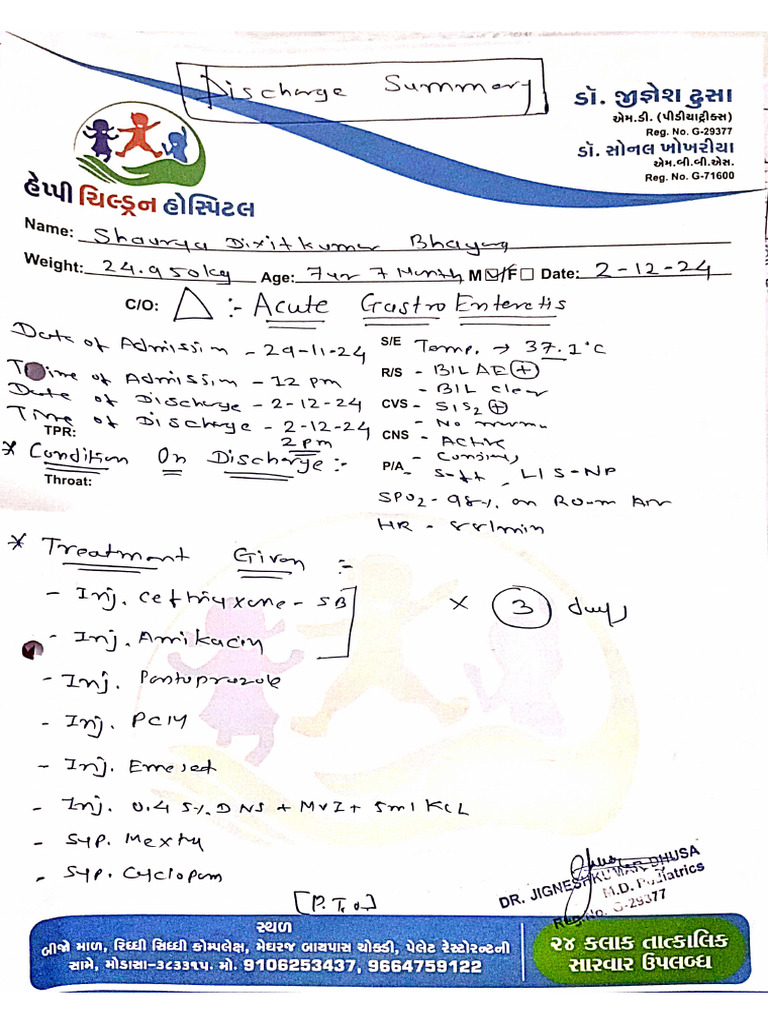 Discharge Summary
ડૉ. જીજ્ઞેશ ઢુસા
એમ.ડી. (પીડીયાટ્રીક્સ)
Reg. No. G-29377
ડૉ. સોનલ ખોખરીયા
એમ.બી.બી.એસ.
Reg. No. G-71600
હેપ્પી ચિલ્ડ્રન હોસ્પિટલ
Name: Shaurya Dixitkumar Bhayag
Weight: 24.950kg Age: 7 yr 7 Month M ☑/F ☐ Date: 2-12-24
C/O: △ :- Acute Gastro Enteretis
Date of Admission - 29-11-24
Time of Admission - 12 pm
Date of Discharge - 2-12-24
Time of Discharge - 2-12-24
2 pm
TPR:
* Condition On Discharge :-
Throat:
S/E Temp. → 37.1°C
R/S - BIL AE (+)
- BIL clear
CVS - S1S2 (+)
- No murmu
CNS - Active
- Conscious
P/A - Soft, LIS-NP
SPO2 - 98% on Room Air
HR - 88/min
* Treatment Given :-
- Inj. ceftriyxone - SB
- Inj. Amikacin
× 3 days
- Inj. Pantoprazole
- Inj. PCM
- Inj. Emeset
- Inj. 0.45% DNS + MVI + 5ml KCL
- Syp. Mexty
- Syp. Cyclopam
[P.T.O.]
DR. JIGNESHKUMAR DHUSA
M.D. Pediatrics
Reg. No. G-29377
સ્થળ
બીજો માળ, રિધ્ધી સિધ્ધી કોમ્પલેક્ષ, મેઘરજ બાયપાસ ચોકડી, પેલેટ રેસ્ટોરન્ટની
સામે, મોડાસા-૩૮૩૩૧૫. મો. 9106253437, 9664759122
૨૪ કલાક તાત્કાલિક
સારવાર ઉપલબ્ધ